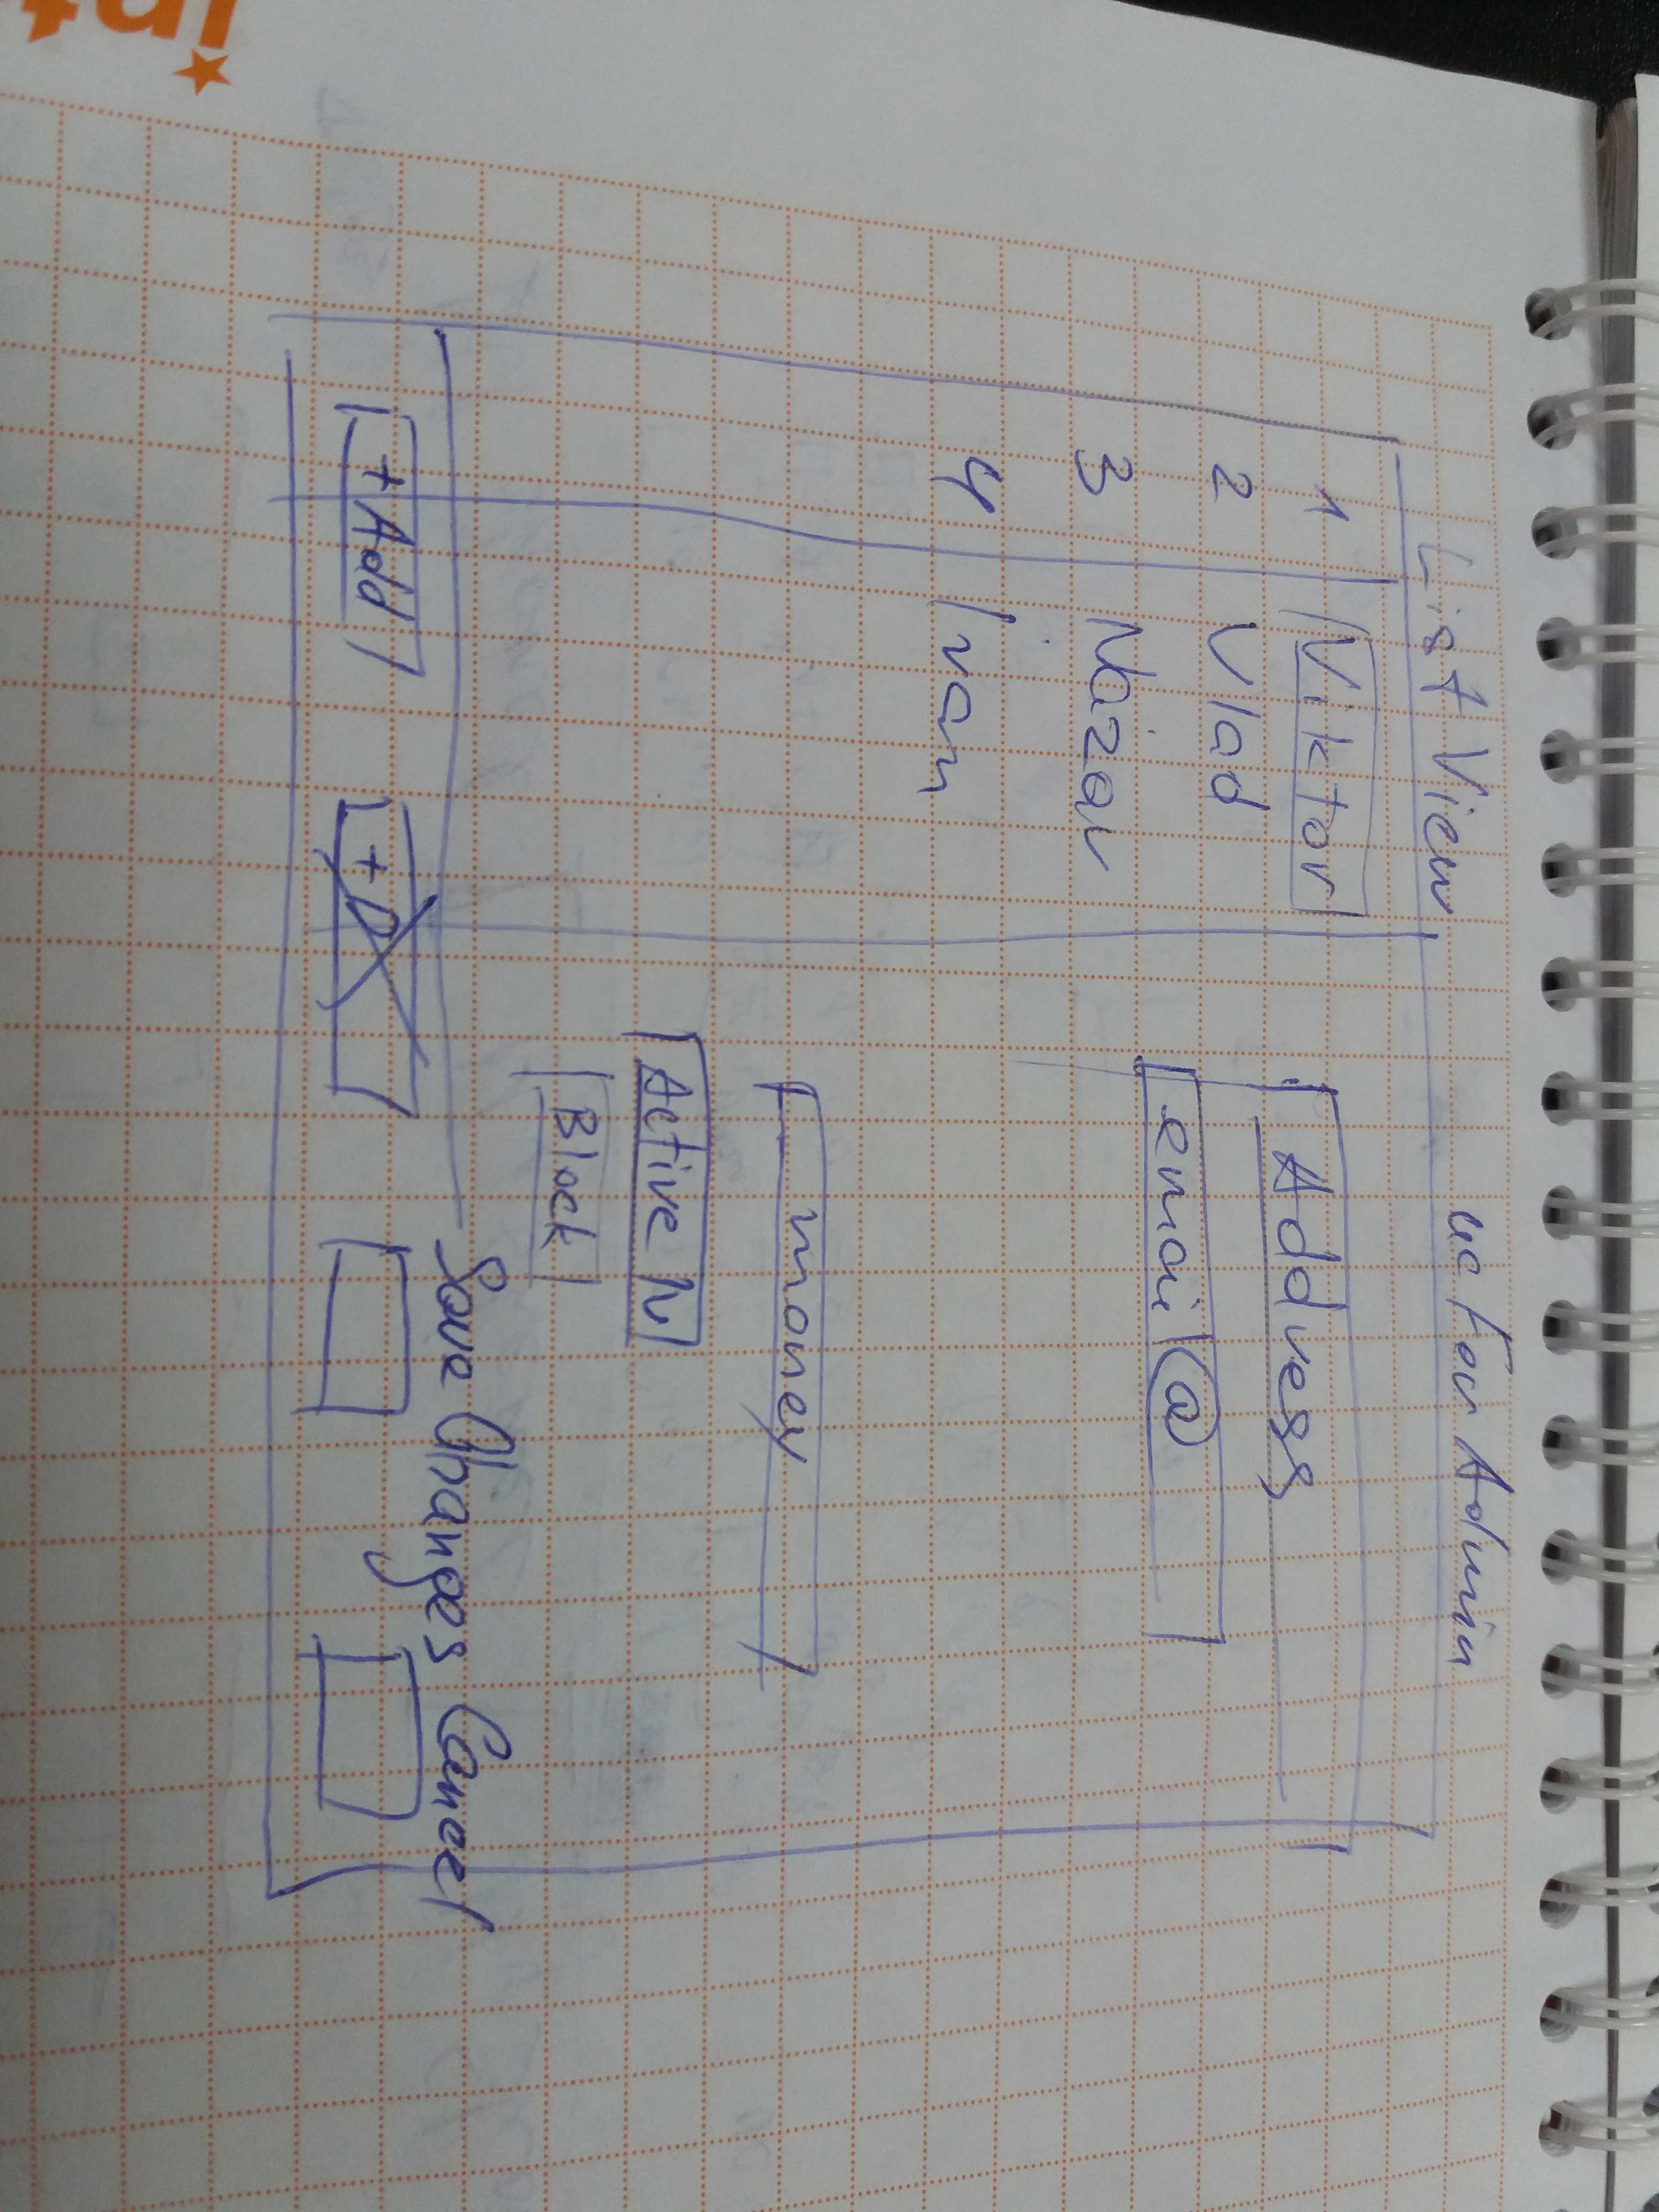 List View
uc For Admin
1 Viktor
2 Vlad
3 Nazar
4 Ivan
Address
email @
money
Active
Block
+ Add
+ D
Save Changes Cancel